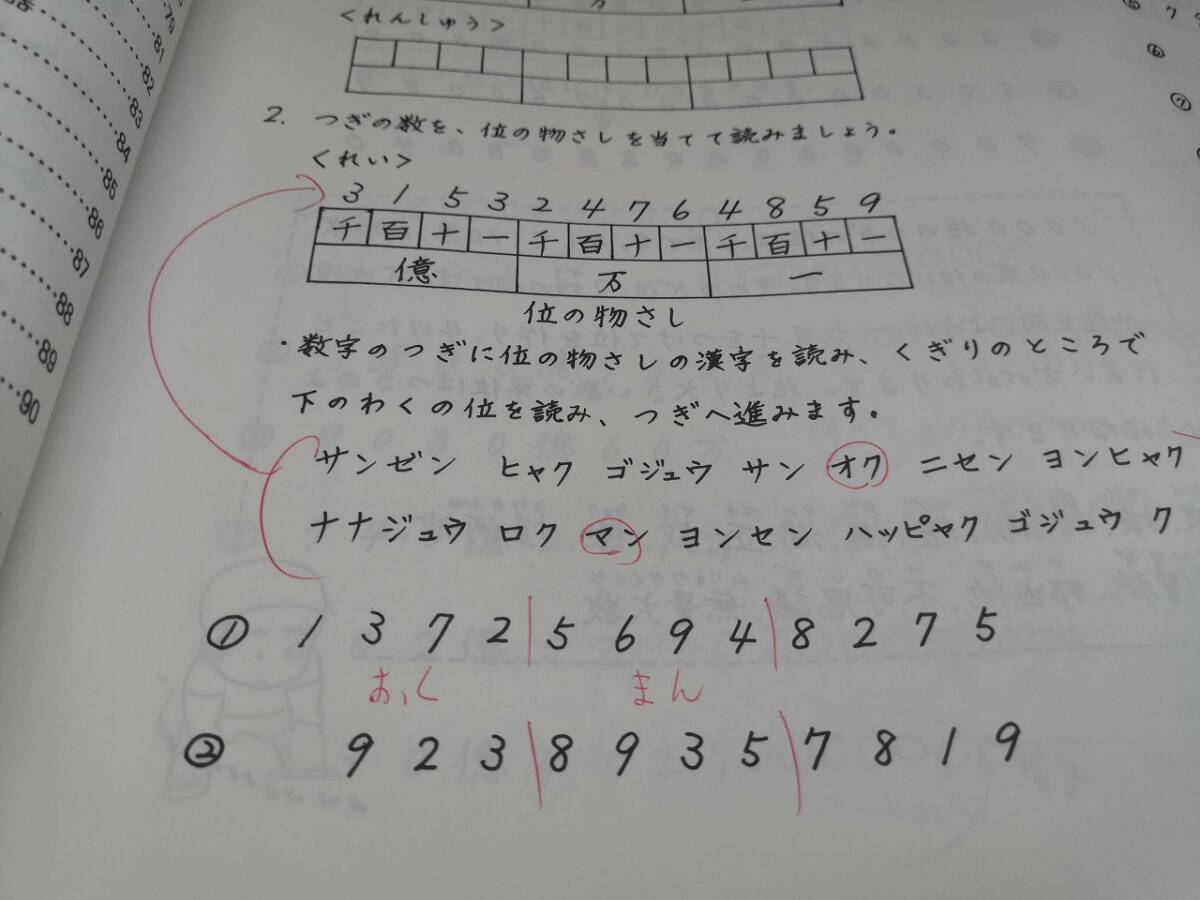 79
81
82
83
84
85
86
87
88
89
90
万
<れんしゅう>
2. つぎの数を、位の物さしを当てて読みましょう。
<れい>
3 1 5 3 2 4 7 6 4 8 5 9
千 百 十 一 千 百 十 一 千 百 十 一
億 万 一
位の物さし
・数字のつぎに位の物さしの漢字を読み、くぎりのところで
下のわくの位を読み、つぎへ進みます。
サンゼン ヒャク ゴジュウ サン オク ニセン ヨンヒャク
ナナジュウ ロク マン ヨンセン ハッピャク ゴジュウ ク
① 1 3 7 2 5 6 9 4 8 2 7 5
おく まん
② 9 2 3 8 9 3 5 7 8 1 9
⑤ 7
⑥
⑦